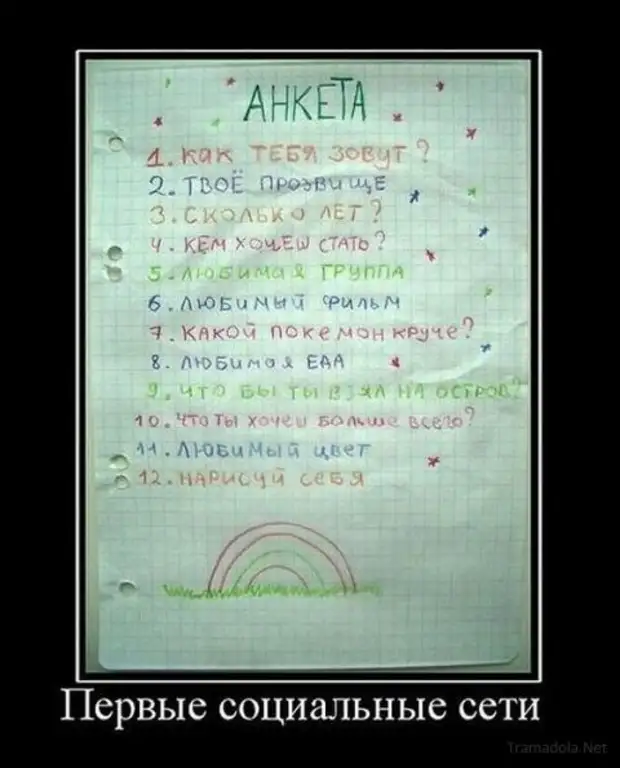 АНКЕТА
1. КАК ТЕБЯ ЗОВУТ?
2. ТВОЁ ПРОЗВИЩЕ
3. СКОЛЬКО ЛЕТ?
4. КЕМ ХОЧЕШ СТАТЬ?
5. ЛЮБИМАЯ ГРУППА
6. ЛЮБИМЫЙ ФИЛЬМ
7. КАКОЙ ПОКЕМОН КРУЧЕ?
8. ЛЮБИМАЯ ЕДА
9. ЧТО БЫ ТЫ ВЗЯЛ НА ОСТРОВ?
10. ЧТО ТЫ ХОЧЕШ БОЛЬШЕ ВСЕГО?
11. ЛЮБИМЫЙ ЦВЕТ
12. НАРИСУЙ СЕБЯ
Первые социальные сети
Tramadola.Net